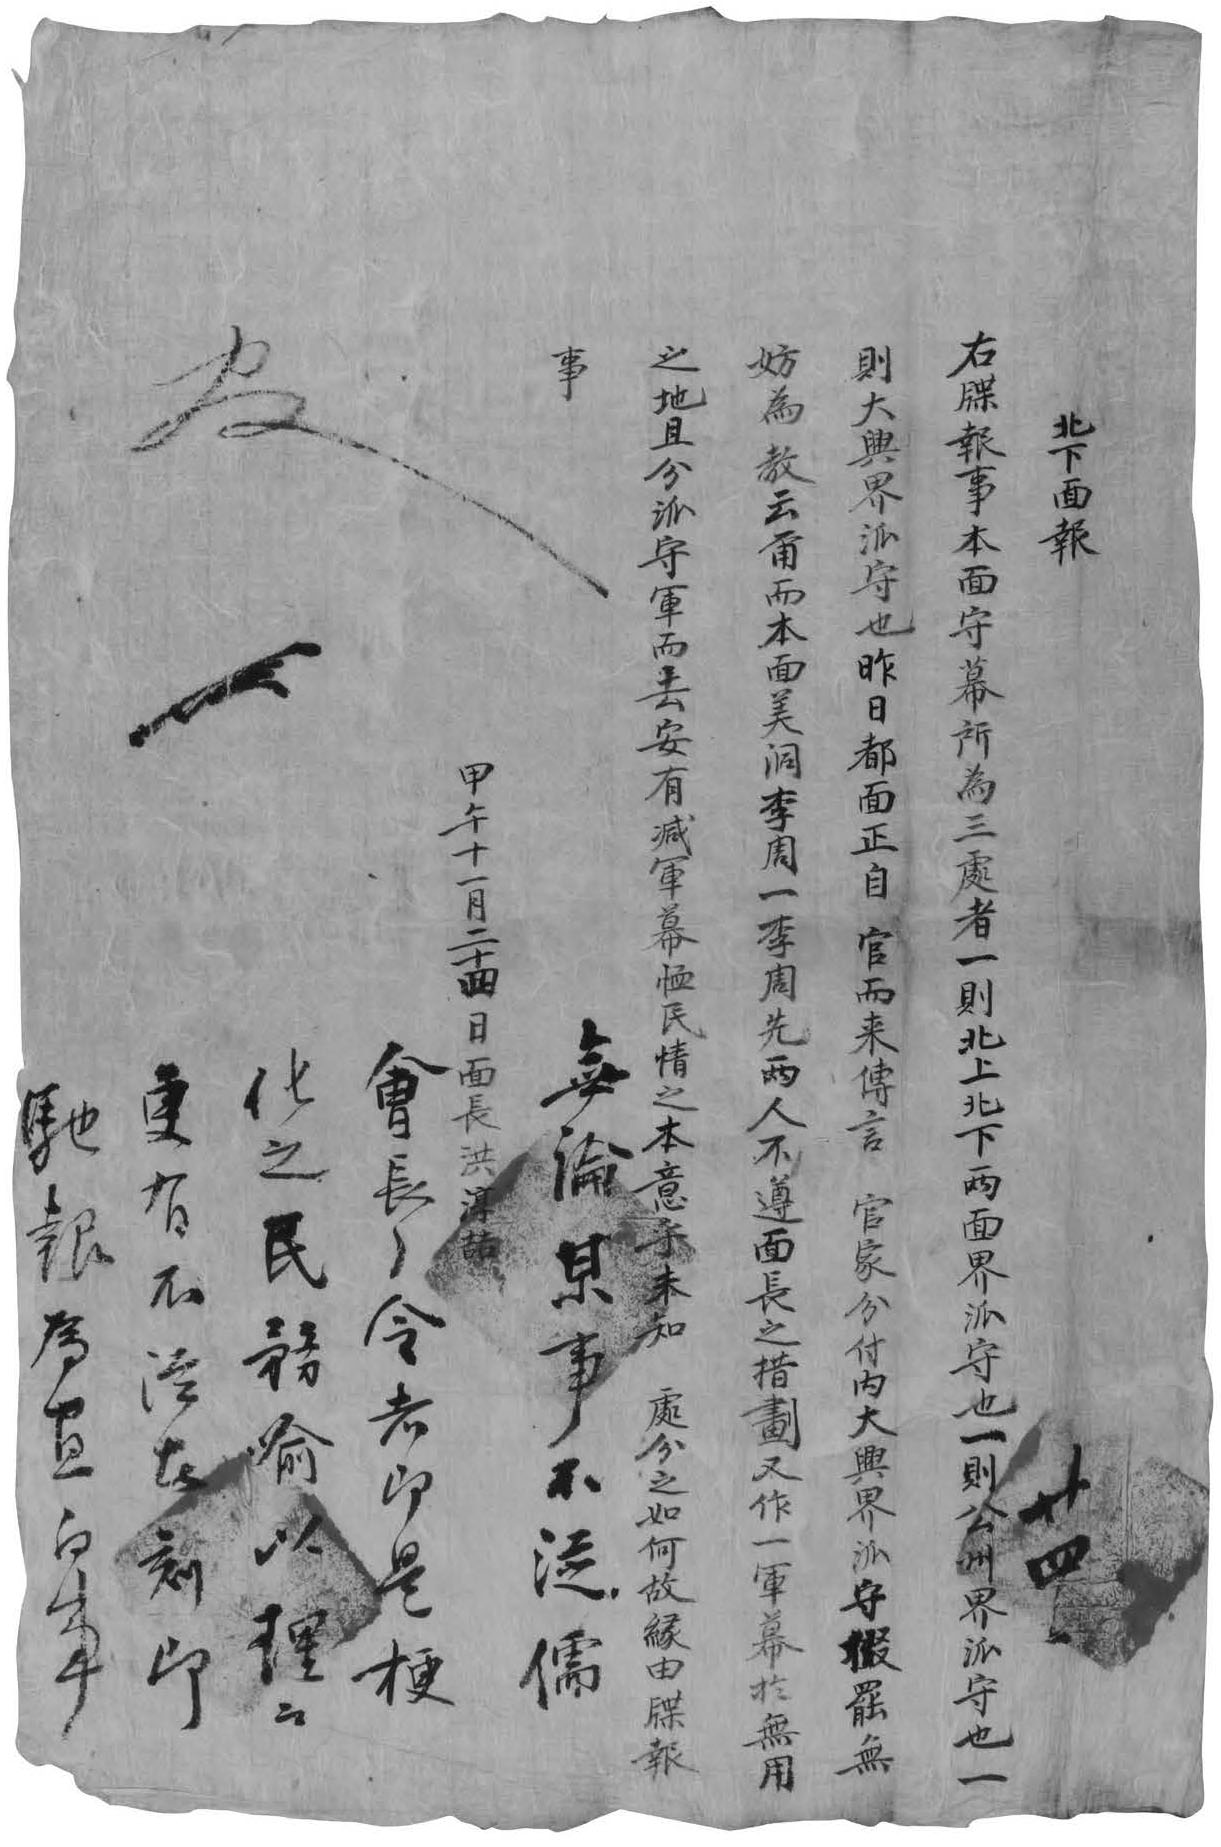 北下面報
右牒報事本面守幕所為三處者一則北上北下兩面界派守也一則公州界派守也一
則大興界派守也昨日都面正自 官而来傳言 官家分付內大興界派守撤罷無
妨為 教云爾而本面美洞李周一李周先兩人不遵面長之措劃又作一軍幕於無用
之地且分派守軍而去安有减軍幕恤民情之本意乎未知 處分之如何故緣由牒報
事
甲午十一月二十四日面長洪淳喆
無論某事不從儒
會長之令者即是梗
化之民務喻以理云
更有不從者刻即
馳報為宜向事
廿四